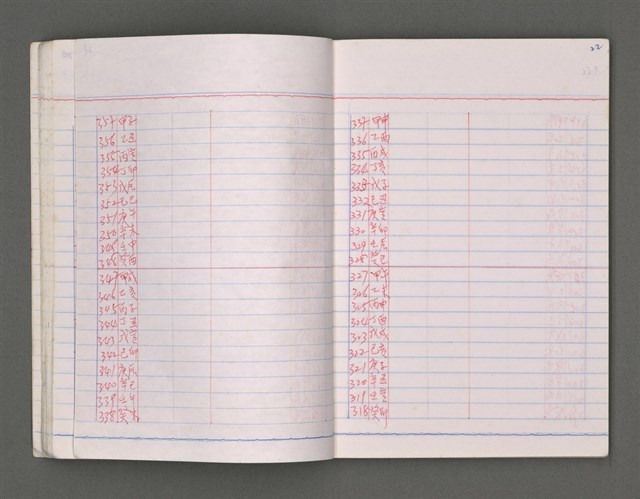 22
357 甲子
356 乙丑
355 丙寅
354 丁卯
353 戊辰
352 己巳
351 庚午
350 辛未
349 壬申
348 癸酉
347 甲戌
346 乙亥
345 丙子
344 丁丑
343 戊寅
342 己卯
341 庚辰
340 辛巳
339 壬午
338 癸未
337 甲申
336 乙酉
335 丙戌
334 丁亥
333 戊子
332 己丑
331 庚寅
330 辛卯
329 壬辰
328 癸巳
327 甲午
326 乙未
325 丙申
324 丁酉
323 戊戌
322 己亥
321 庚子
320 辛丑
319 壬寅
318 癸卯